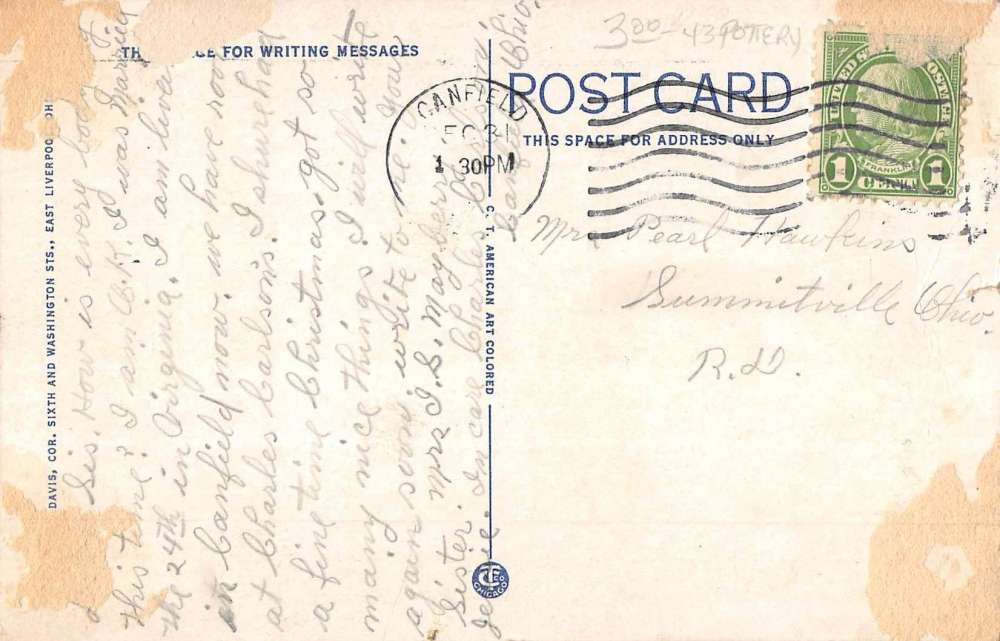 TH CE FOR WRITING MESSAGES
DAVIS, COR. SIXTH AND WASHINGTON STS., EAST LIVERPOO OH
Sis. How is every body
this time? I am O.K. I was Married
the 24th in Virginia. I am liven
in Canfield now. we have room
at Charles Carlson's. I sure had
a fine time Christmas. got so
many nice things. I will write
again soon. write to me. Your
Sister. Mrs I. S. Mayberry
In care Charles
Canfield Ohio.
C. T. AMERICAN ART COLORED
CHICAGO
3 00 - 43 POTTERY
POST CARD
THIS SPACE FOR ADDRESS ONLY
CANFIELD
DEC 31
1 30PM
UNITED STATES POSTAGE
FRANKLIN
1 1
Mrs Pearl Hawkins
Summitville Ohio.
R.D.